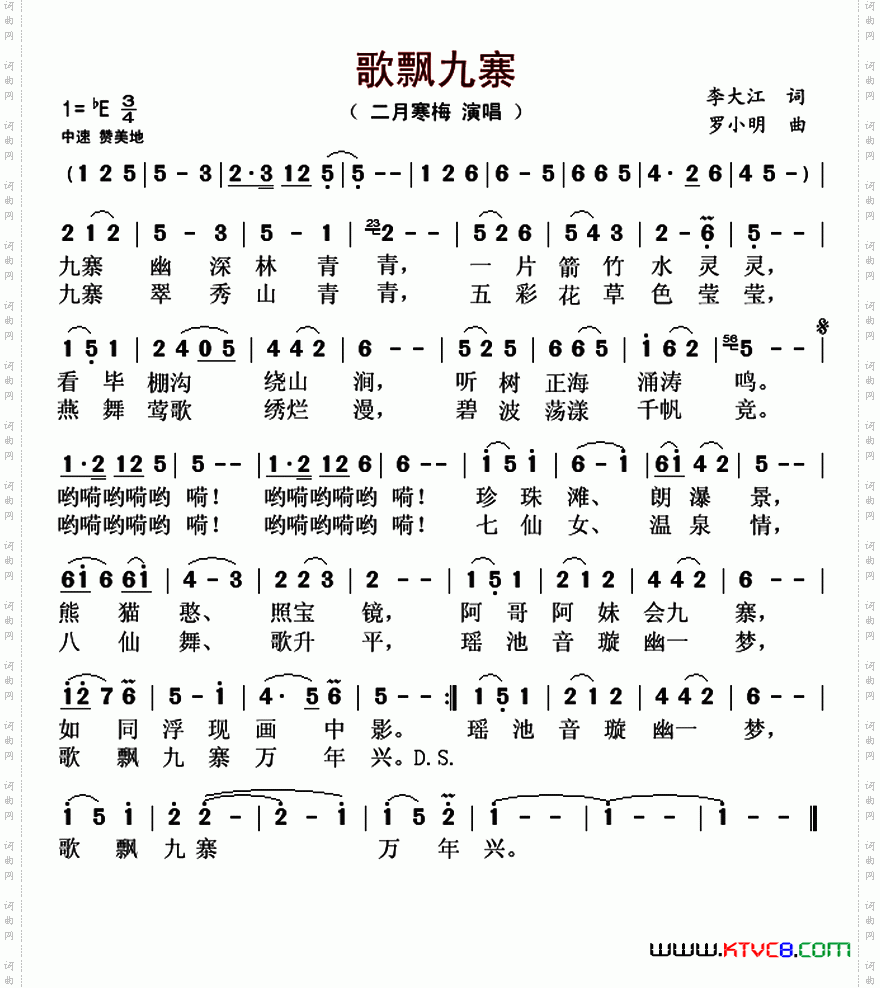 歌飘九寨
1=♭E 3/4
（ 二月寒梅 演唱 ）
李大江 词
中速 赞美地
罗小明 曲
(1 2 5 | 5 - 3 | 2·3 12 5 | 5 - - | 1 2 6 | 6 - 5 | 6 6 5 | 4· 2 6 | 4 5 - ) |
2 1 2 | 5 - 3 | 5 - 1 | 23 2 - - | 5 2 6 | 5 4 3 | 2 - 6 | 5 - - |
九寨 幽 深 林 青 青， 一 片 箭 竹 水 灵 灵，
九寨 翠 秀 山 青 青， 五 彩 花 草 色 莹 莹，
1 5 1 | 2 4 0 5 | 4 4 2 | 6 - - | 5 2 5 | 6 6 5 | 1 6 2 | 56 5 - - |
看 毕 棚沟 绕山 涧， 听 树 正海 涌涛 鸣。
燕 舞 莺歌 绣烂 漫， 碧 波 荡漾 千帆 竞。
1·2 12 5 | 5 - - | 1·2 12 6 | 6 - - | 1 5 1 | 6 - 1 | 61 4 2 | 5 - - |
哟嗬哟嗬哟 嗬！ 哟嗬哟嗬哟 嗬！ 珍 珠 滩、 朗 瀑 景，
哟嗬哟嗬哟 嗬！ 哟嗬哟嗬哟 嗬！ 七 仙 女、 温 泉 情，
61 6 61 | 4 - 3 | 2 2 3 | 2 - - | 1 5 1 | 2 1 2 | 4 4 2 | 6 - - |
熊 猫 憨、 照宝 镜， 阿 哥 阿 妹 会九 寨，
八 仙 舞、 歌升 平， 瑶 池 音 璇 幽一 梦，
12 7 6 | 5 - 1 | 4· 5 6 | 5 - - :|| 1 5 1 | 2 1 2 | 4 4 2 | 6 - - |
如 同 浮 现 画 中 影。 瑶 池 音 璇 幽一 梦，
歌 飘 九 寨 万 年 兴。D.S.
1 5 1 | 2 2 - | 2 - 1 | 1 5 2 | 1 - - | 1 - - ||
歌 飘 九 寨 万 年 兴。
www.KTVC8.com
词曲网